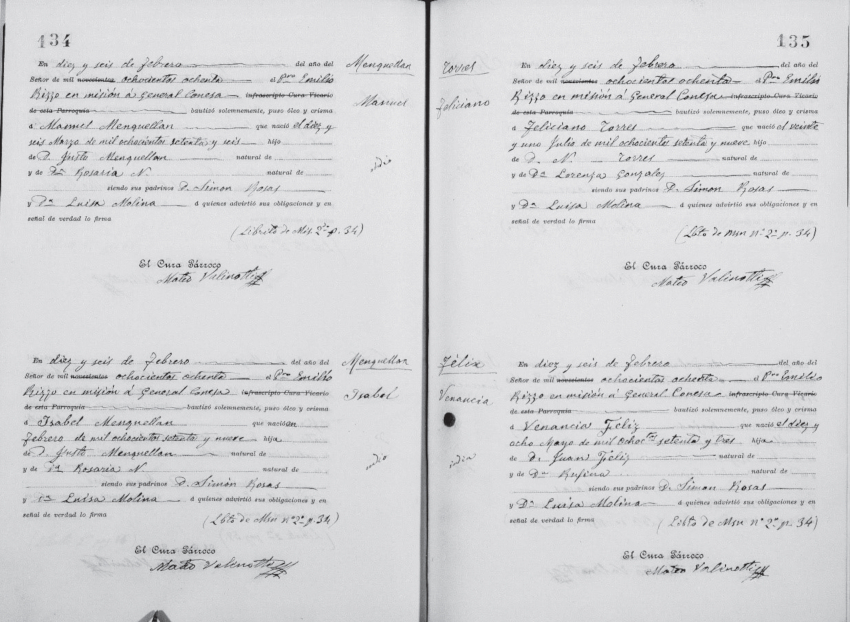 134
En diez y seis de febrero del año del
Señor de mil novecientos ochocientos ochenta el Pro Emilio
Rizzo en misión á General Conesa infrascripto Cura Vicario
de esta Parroquia bautizó solemnemente, puso óleo y crisma
á Manuel Menquellan que nació el diez y
seis Marzo de mil ochocientos setenta y seis hijo
de D. Justo Menquellan natural de
y de Da Rosaria N. natural de
siendo sus padrinos D. Simon Rosas
y Da Luisa Molina á quienes advirtió sus obligaciones y en
señal de verdad lo firma
(Librito de Mis. 2o p. 34)
El Cura Párroco
Mateo Valinotti
Menquellan
Manuel
indio
En diez y seis de febrero del año del
Señor de mil novecientos ochocientos ochenta el Pro Emilio
Rizzo en misión á General Conesa infrascripto Cura Vicario
de esta Parroquia bautizó solemnemente, puso óleo y crisma
á Isabel Menquellan que nació en
Febrero de mil ochocientos setenta y nueve hija
de D. Justo Menquellan natural de
y de Da Rosaria N. natural de
siendo sus padrinos D. Simón Rosas
y Da Luisa Molina á quienes advirtió sus obligaciones y en
señal de verdad lo firma
(Lbto de Msn no 2o p. 34)
El Cura Párroco
Mateo Valinotti
Menquellan
Isabel
indio
135
Torres
Feliciano
En diez y seis de febrero del año del
Señor de mil novecientos ochocientos ochenta el Pro Emilio
Rizzo en misión á General Conesa infrascripto Cura Vicario
de esta Parroquia bautizó solemnemente, puso óleo y crisma
á Feliciano Torres que nació el veinte
y uno Julio de mil ochocientos setenta y nueve hijo
de D. N. Torres natural de
y de Da Lorenza Gonzalez natural de
siendo sus padrinos D. Simon Rosas
y Da Luisa Molina á quienes advirtió sus obligaciones y en
señal de verdad lo firma
(Lbto de Msn no 2o p. 34)
El Cura Párroco
Mateo Valinotti
Féliz
Venancia
india
En diez y seis de febrero del año del
Señor de mil novecientos ochocientos ochenta el Pro Emilio
Rizzo en misión á General Conesa infrascripto Cura Vicario
de esta Parroquia bautizó solemnemente, puso óleo y crisma
á Venancia Féliz que nació el diez y
ocho Marzo de mil ochoctos setenta y tres hija
de D. Juan Féliz natural de
y de Da Rufina natural de
siendo sus padrinos D. Simon Rosas
y Da Luisa Molina á quienes advirtió sus obligaciones y en
señal de verdad lo firma
(Lbto de Msn no 2o p. 34)
El Cura Párroco
Mateo Valinotti